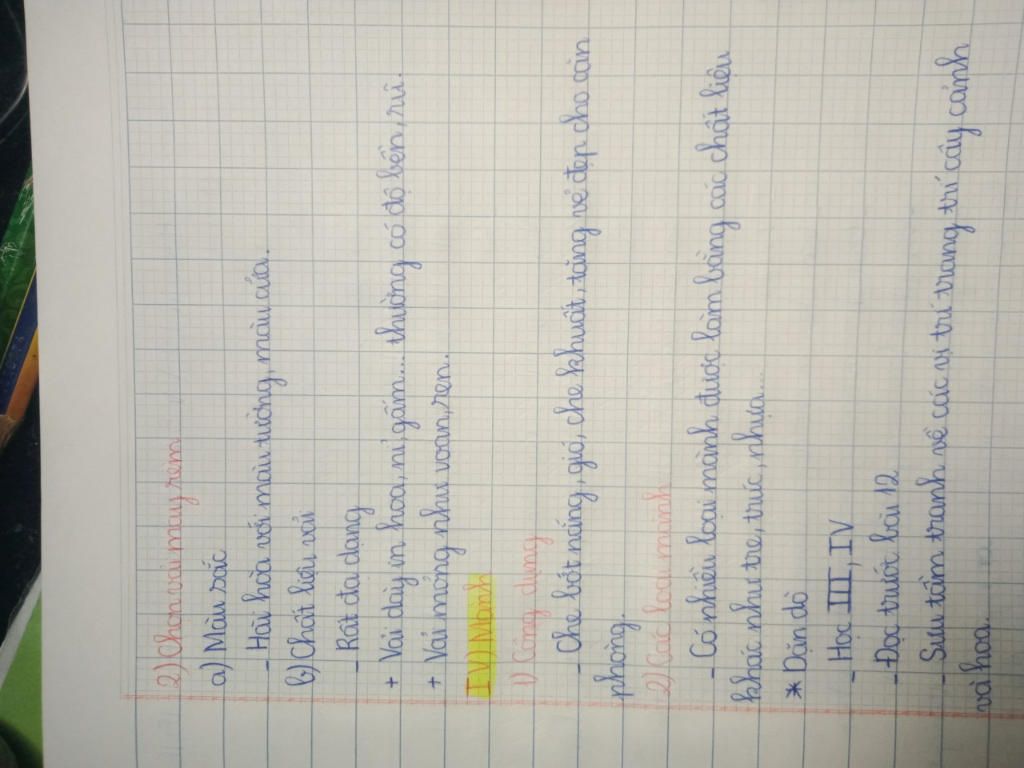 2) Chọn vải may rèm
a) Màu sắc
- Hài hòa với màu tường, màu cửa.
b) Chất liệu vải
- Rất đa dạng
+ Vải dày in hoa, nỉ, gấm... thường có độ bền, rũ.
+ Vải mỏng như voan, ren.
IV) Mành
1) Công dụng
- Che bớt nắng, gió, che khuất, tăng vẻ đẹp cho căn
phòng.
2) Các loại mành
- Có nhiều loại mành được làm bằng các chất liệu
khác như tre, trúc, nhựa...
* Dặn dò
- Học III, IV
- Đọc trước bài 12
- Sưu tầm tranh về các vị trí trang trí cây cảnh
và hoa.